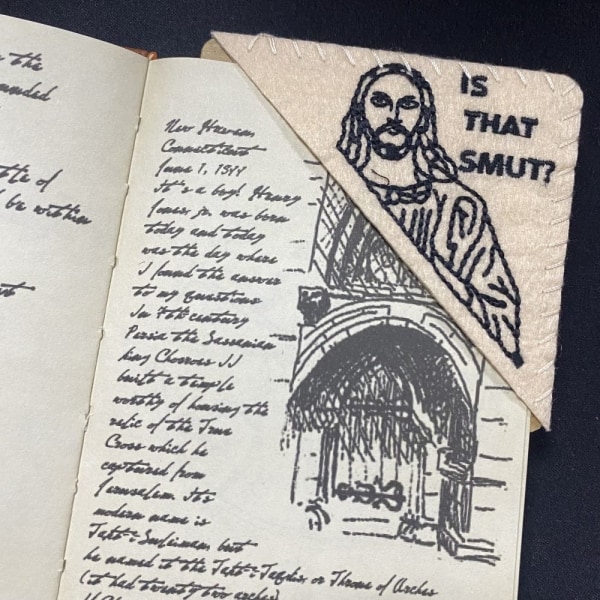 to the
nded
tle of
l be within
New Haven
Connecticut
June 1, 19
It's a boy! Henry
Jones, jr. was born
today and today
was the day where
I found the answer
to my questions
In 7th century
Persia the Sassanian
king Chosroes II
built a temple
worthy of housing the
relic of the True
Cross which he
captured from
Jerusalem. It's
modern name is
Takht-i-Suleiman, but
he named it the Takht-i-Taqdis or Throne of Arches
(it had twenty two arches)
IS
THAT
SMUT?